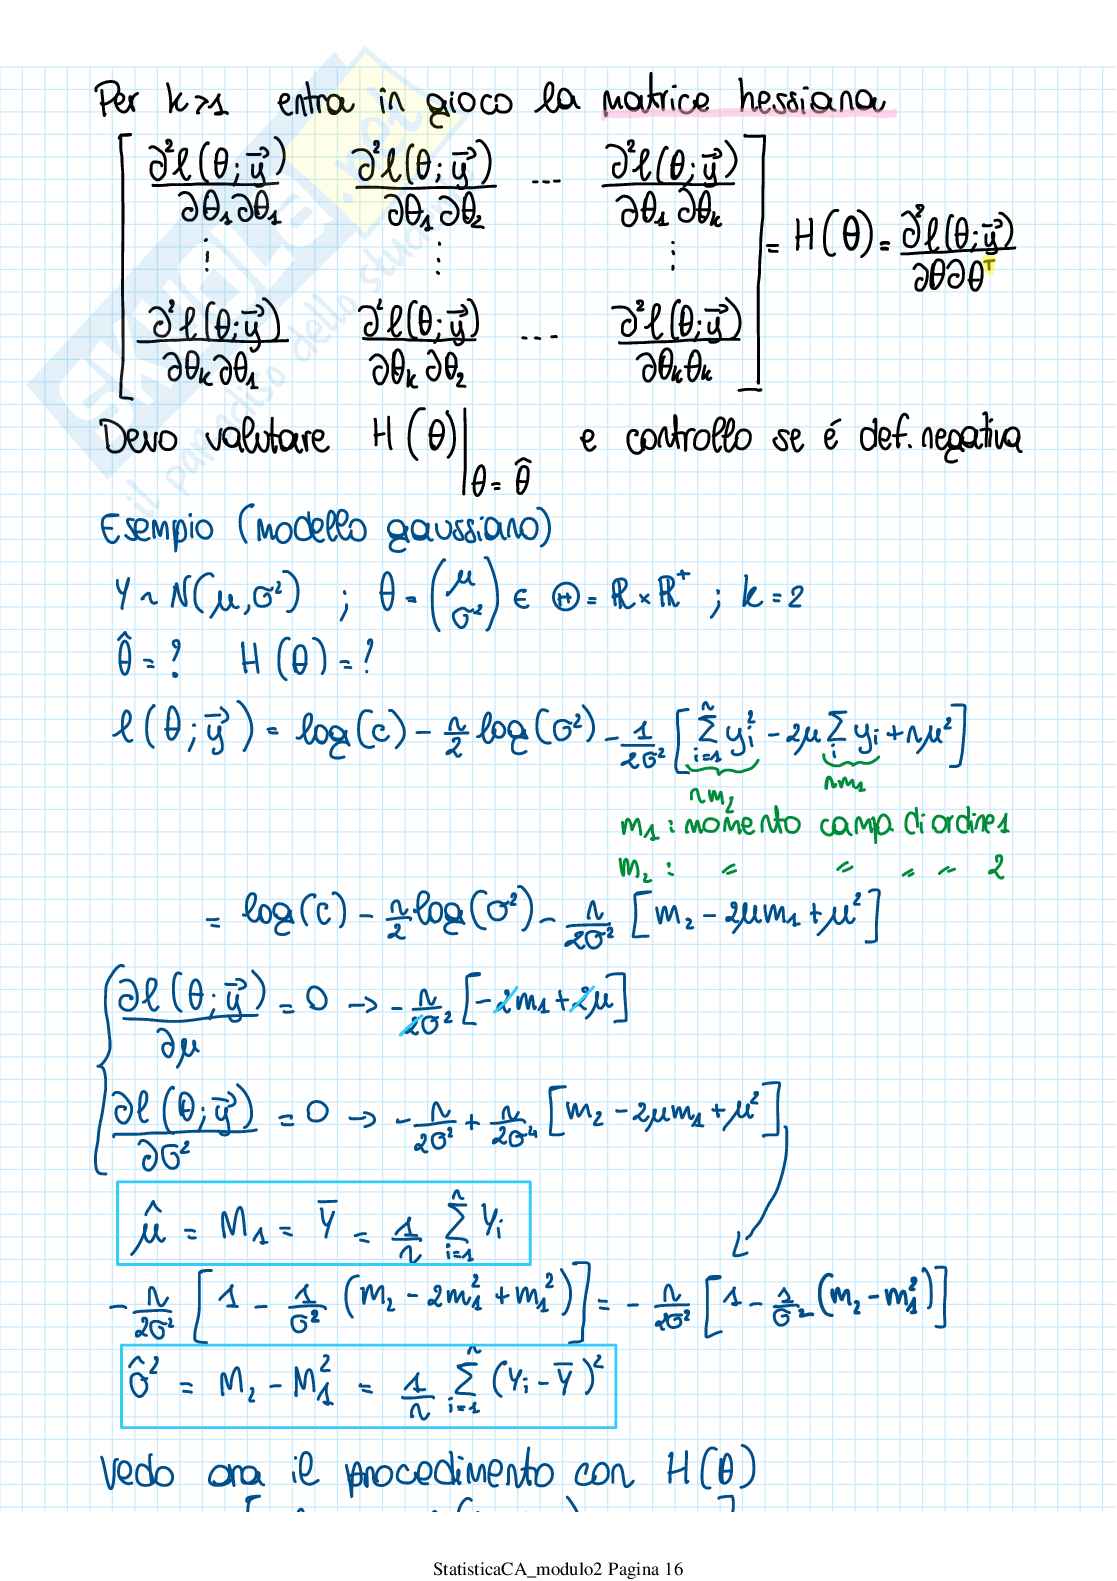 Per k>1 entra in gioco la matrice hessiana
[ ∂²ℓ(θ;y⃗)/∂θ₁∂θ₁ ∂²ℓ(θ;y⃗)/∂θ₁∂θ₂ ... ∂²ℓ(θ;y⃗)/∂θ₁∂θₖ
⋮ ⋮ ⋮
∂²ℓ(θ;y⃗)/∂θₖ∂θ₁ ∂²ℓ(θ;y⃗)/∂θₖ∂θ₂ ... ∂²ℓ(θ;y⃗)/∂θₖθₖ ] = H(θ) = ∂²ℓ(θ;y⃗)/∂θ∂θᵀ
Devo valutare H(θ)|θ=θ̂ e controllo se é def. negativa
Esempio (modello gaussiano)
Y ~ N(μ,σ²) ; θ = (μ σ²) ∈ Θ = ℝ×ℝ⁺ ; k=2
θ̂ = ? H(θ) = ?
ℓ(θ;y⃗) = log(c) - n/2 log(σ²) - 1/2σ² [ Σᵢ₌₁ⁿ yᵢ² - 2μ Σᵢ yᵢ + nμ² ]
nm₂ nm₁
m₁ : momento camp. di ordine 1
m₂ : " " " " 2
= log(c) - n/2 log(σ²) - n/2σ² [ m₂ - 2μm₁ + μ² ]
∂ℓ(θ;y⃗)/∂μ = 0 → - n/2σ² [ -2m₁ + 2μ ]
∂ℓ(θ;y⃗)/∂σ² = 0 → - n/2σ² + n/2σ⁴ [ m₂ - 2μm₁ + μ² ]
μ̂ = M₁ = Ȳ = 1/n Σᵢ₌₁ⁿ Yᵢ
- n/2σ² [ 1 - 1/σ² (m₂ - 2m₁² + m₁²) ] = - n/2σ² [ 1 - 1/σ² (m₂ - m₁²) ]
σ̂² = M₂ - M₁² = 1/n Σᵢ₌₁ⁿ (Yᵢ - Ȳ)²
Vedo ora il procedimento con H(θ)
StatisticaCA_modulo2 Pagina 16